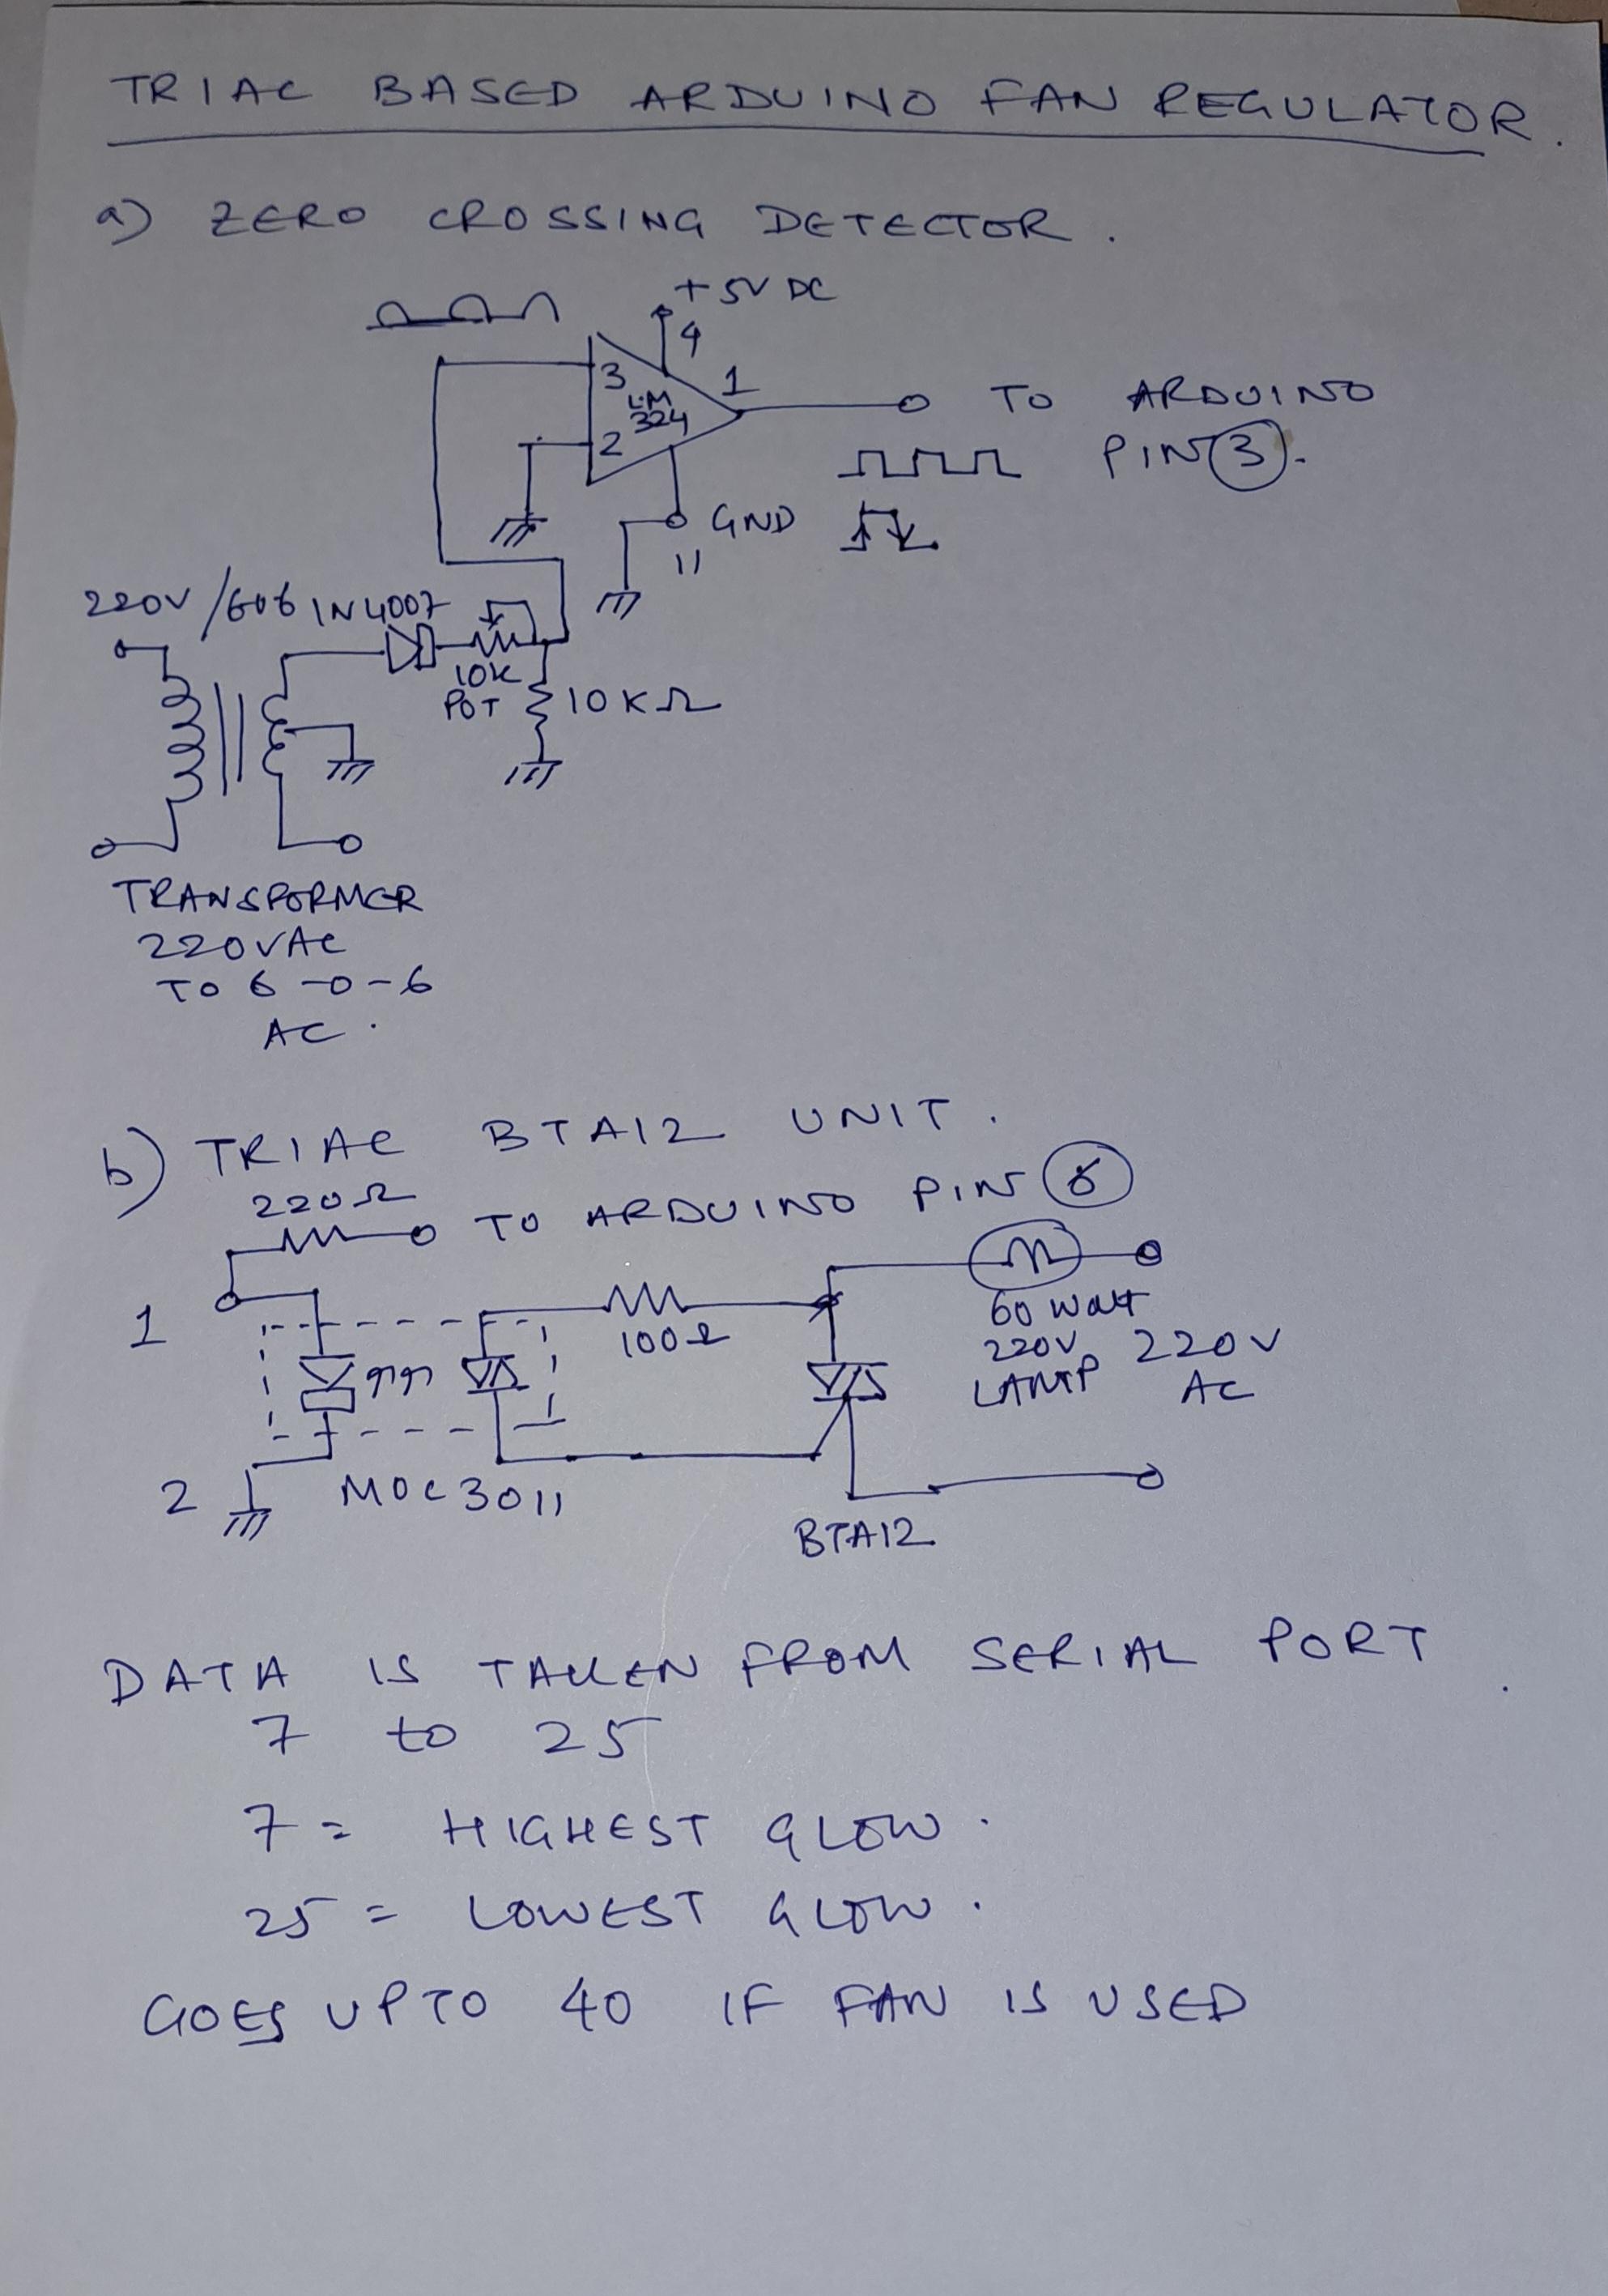 TRIAC BASED ARDUINO FAN REGULATOR.
a) ZERO CROSSING DETECTOR.
+ 5V DC
4
3
1
LM
324
2
TO ARDUINO
PIN 3.
GND
11
220V / 606 IN4007
10K
POT
10KΩ
TRANSFORMER
220VAC
TO 6-0-6
AC.
b) TRIAC BTA12 UNIT.
220Ω
TO ARDUINO PIN 6
1
100Ω
60 Watt
220V
LAMP
220V
AC
2
MOC3011
BTA12
DATA IS TAKEN FROM SERIAL PORT.
7 to 25
7 = HIGHEST GLOW.
25 = LOWEST GLOW.
GOES UPTO 40 IF FAN IS USED